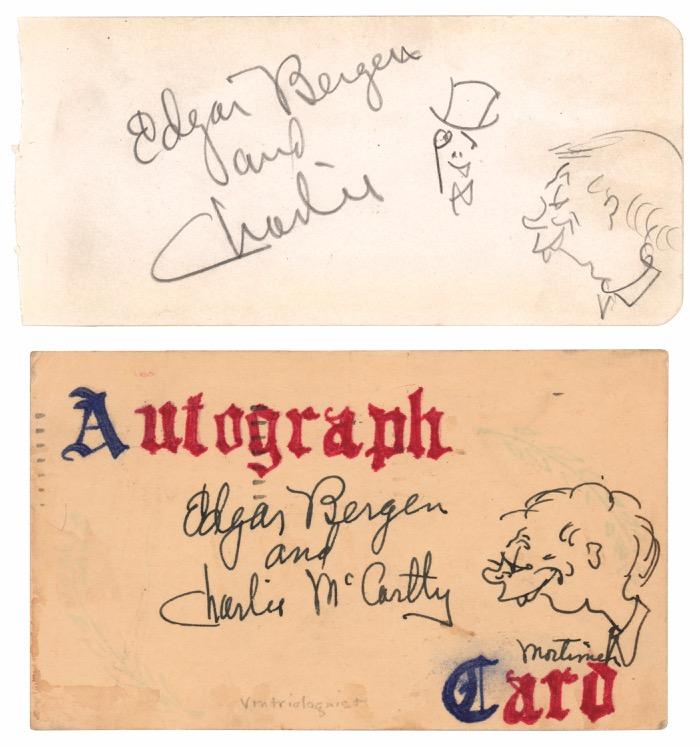 Edgar Bergen
and
Charlie
Autograph
Edgar Bergen
and
Charlie McCarthy
Mortimer
Card
Ventriloquist